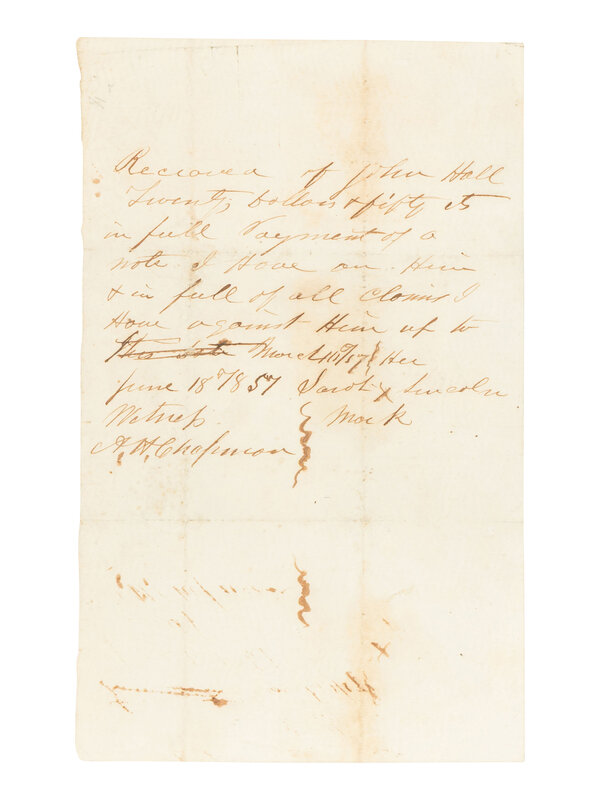 Recieved of John Hall
Twenty Dollars & fifty cts
in full Payment of a
note I Have on Him
& in full of all claims I
Have against Him up to
this date March 16th/57 Her
June 18th 1857 Sarah X Lincoln
Witness Mark
A. H. Chapman